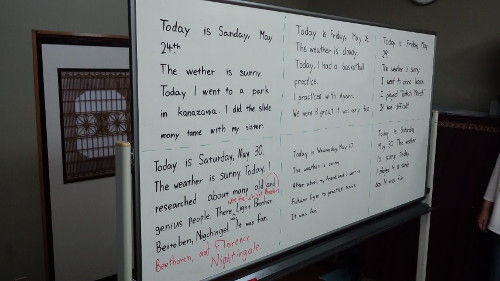 Today is Sanday, May
24th
The wether is sunny.
Today I went to a park
in kanazawa. I did the slide
many tame with my sister.
Today is Friday, May
The weather is clowdy.
Today, I had a basketball
practice.
I practiced with
We were
Today is Friday May
29
The weather is sunny
I went to piano lesson
I played Turkish March
It was difficult
Today is Saturday, May 30.
The weather is sunny. Today, I
researched about many old and
genius people. There
Beitoben, Nighingel It was fun.
Beethoven, and Florence
Nightingale.
Today is Wednesday May 27
The weather is sunny
After school my friend and I went to
to practice tennis
It was fun
Today is Saturday
May 30 The weather
is sunny Today
I played
It was fun